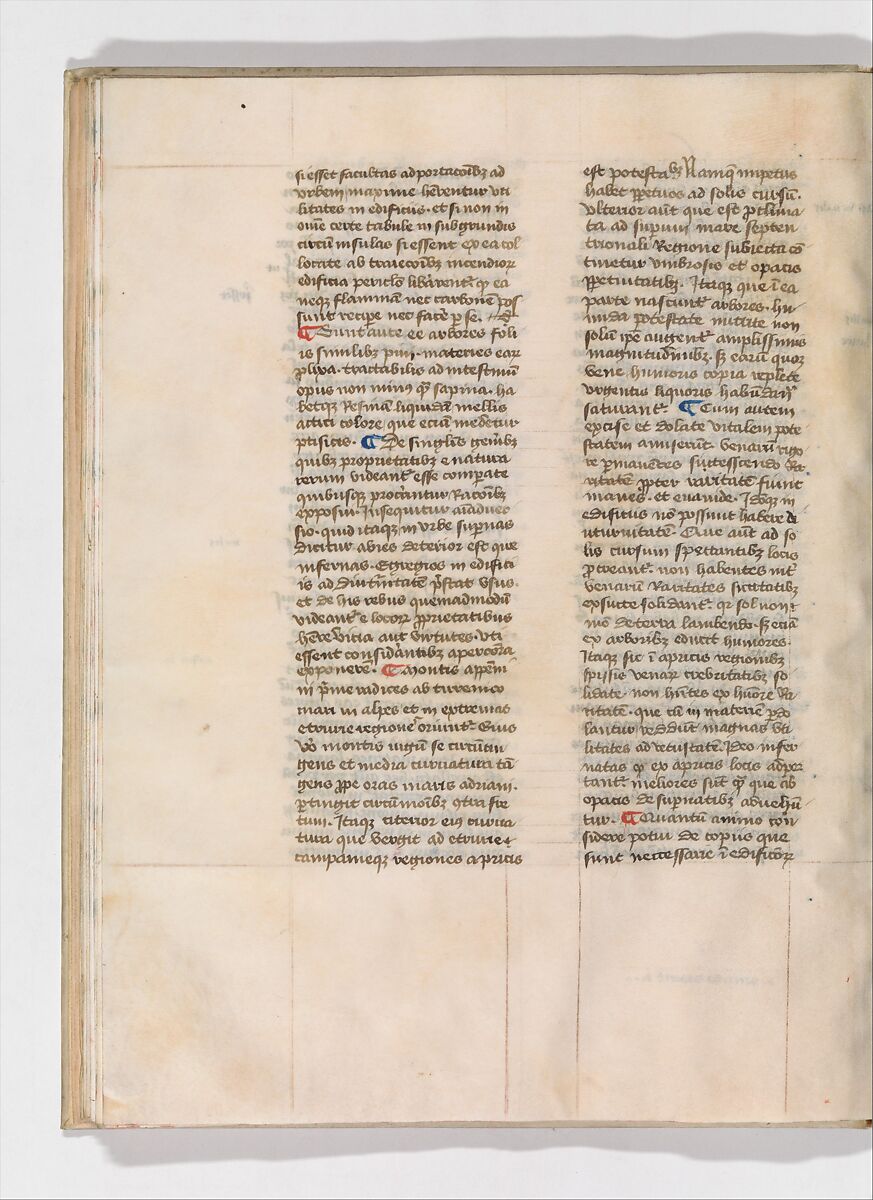 si esset facultas adportacōibꝫ ad
vrbem maxime hēventur vti
litates in edificijs · et si non in
om̄e certe tabule in subgrundis
circū insulas si essent ex ea col
locate ab traiecōibꝫ incendiorꝝ
edificia periclo libārent᷑ qꝫ ea
neqꝫ flammā nec carbonē pos
sunt recipe nec facē ꝑ se.
¶ Sunt aute ee arbores foli
is similibꝫ pini · materies earꝝ
ꝓlixa · tractabilis ad intestinū
opus non minꝰ qꝫ sapina · ha
betqꝫ Resinā liquidā mellis
actici colore que eciā medetur
ptisicis · ¶ De singlis gen̄ibꝫ
quibꝫ proprietatibꝫ e natura
rerum videant᷑ esse comparate
quibusqꝫ procreantur Racōibꝫ
exposui · Insequitur aīaduer
sio · quid itaqꝫ in vrbe supernas
dicitur abies deterior est que
infernas · Egregios in edifici
is ad diut᷑nitatē p̄stat vsus ·
et de his rebus quemadmodū
videant᷑ e locorꝝ ꝓprietatibus
hēre vitia aut virtutes · vti
essent considāntibꝫ apercōra
exponere · ¶ Montis appēni
ni p̄me radices ab tirreneo
mari in alpes et in extremas
etrurie regione᷒ oriunt᷑ · Eius
vo᷒ montis iugū se circūtin
gens et media curuatura tā
gens ꝓpe oras maris adriani ·
ꝑtingit circū inōibꝫ ꝯtra fre
tum · Itaqꝫ citerior eiꝰ curua
tura que vergit ad etrurie ⁊
campanieqꝫ regiones apricis
est potestatibꝫ Namqꝫ impetus
habet ꝑpetuos ad solis cursū ·
Vlterior aūt que est ꝓclinia
ta ad supum mare septen
trionali Regione subiecta cō
tinetur vmbrosis et opacis
ꝑpetuitatibꝫ · Itaqꝫ que ī ea
parte nascunt᷑ arbores · hu
mida potestate nutrite non
solū ipē augent᷑ amplissimis
magnitudinibꝫ · sꝫ earū quoqꝫ
vene humoris copia replete
vrgentis liquoris habūdan
saturant᷑ · ¶ Cum autem
excise et dolate vitalem pote
statem amiserūt · venarū rigo
re ꝑmanētes succescendo Ra
ritatē ꝓpter raritatē fiunt
inanes · et euanide · Idoqꝫ in
edificijs nō possunt habere di
uturnitatē · Que aūt ad so
lis cursum spectantibꝫ locis
ꝓcreant᷑ · non habentes int᷑
venarū Raritates siccitatibꝫ
exsucte solidant᷑ · qꝛ sol non ī
mō de terra lambendo · sꝫ eciā
ex arboribꝫ educit humores ·
Itaqꝫ sic ī apricis regionibꝫ
spissis venarꝝ crebritatibꝫ so
lidate · non hn̄tes ex huōre Ra
ritatē · que cū in materiē ꝑdo
lantur reddūt magnas vti
litates ad vetustatē · Ideo infer
natas qꝫ ex apricis locis adpor
tant᷑ · meliores sūt qꝫ que ab
opacis de supnatibꝫ aduehū
tur · ¶ Quantū animo con
sidere potui de copijs que
sunt neccessarie ī edificiorꝝ